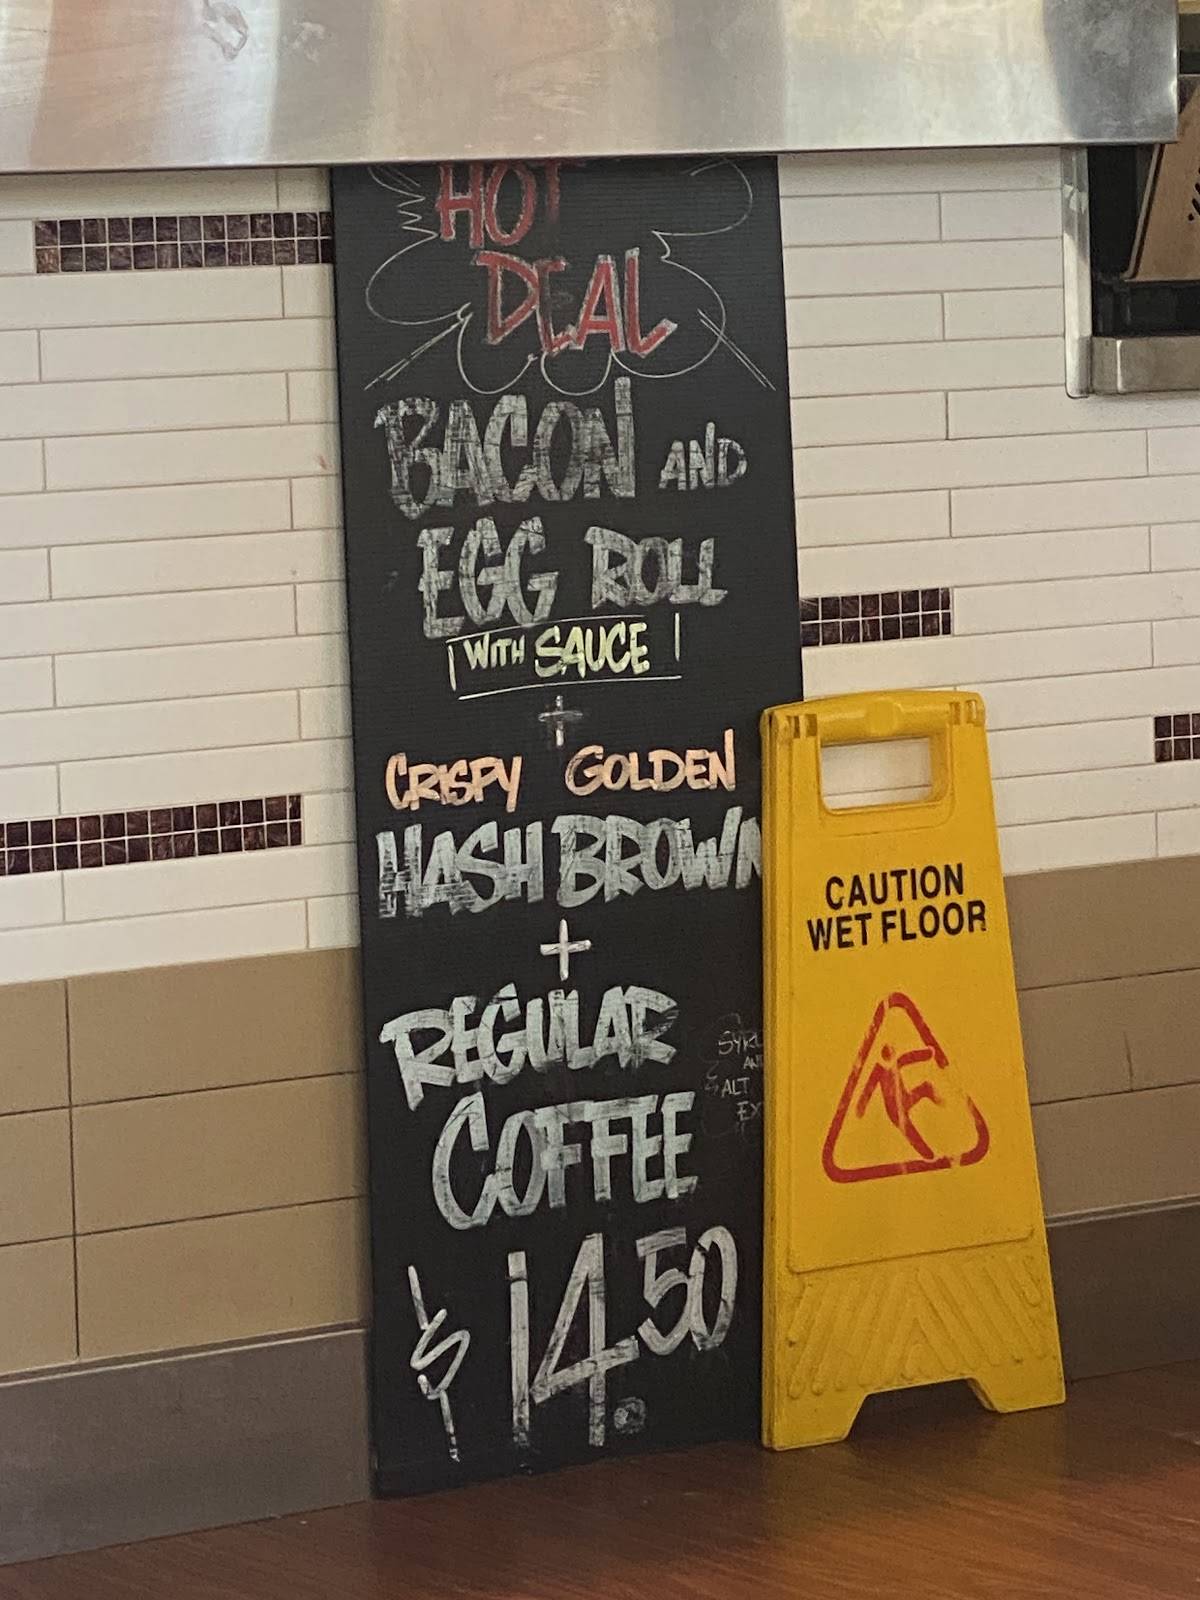 HOT
DEAL
BACON AND
EGG ROLL
WITH SAUCE
+
CRISPY GOLDEN
HASH BROWN
+
REGULAR
COFFEE
$14.50
ALT
CAUTION
WET FLOOR